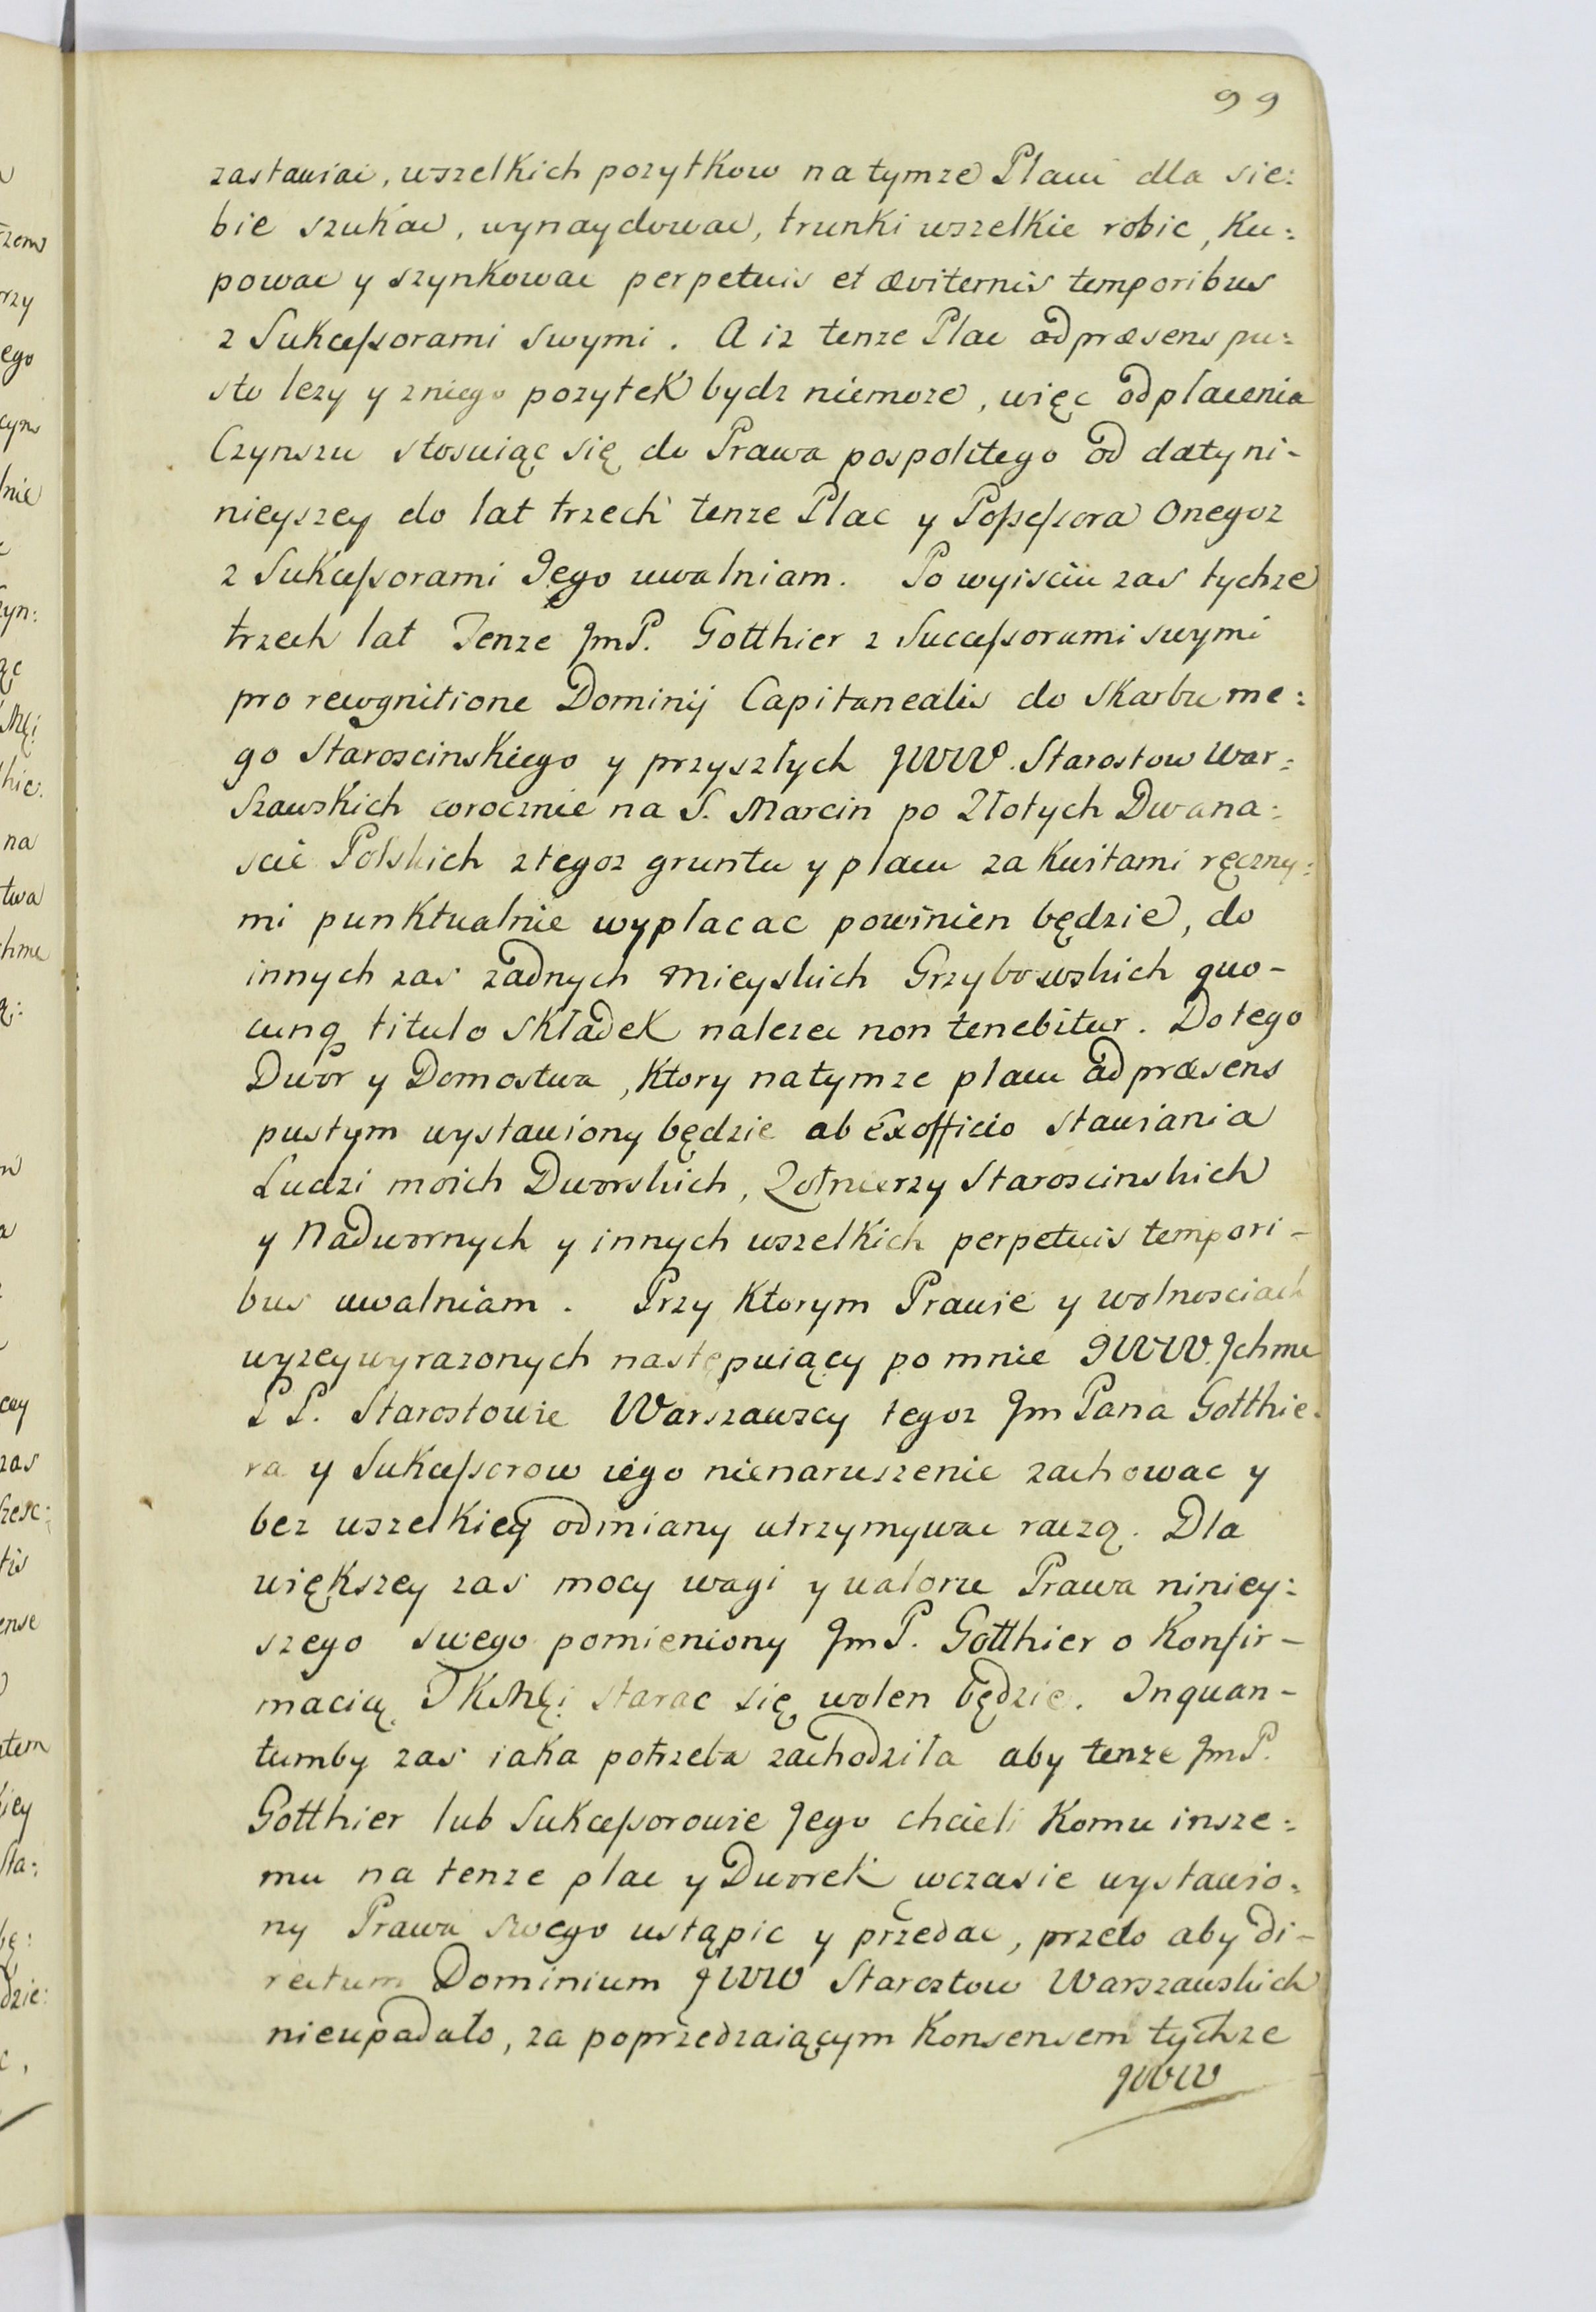 99
zastawiac, wszelkich pozytkow na tymze Placu dla sie:
bie szukac, wynaydowac, trunki wszelkie robic, Ku:
powac y szynkowac perpetuis et æviternis temporibus
z Sukcessorami swymi. A iz tenze Plac ad præsens pu:
sto lezy y zniego pozytek bydz niemoze, więc od placenia
Czynszu stosuiąc się do Prawa pospolitego od daty ni-
nieyszey do lat trzech tenze Plac y Possessora Onegoz
z Sukcessorami Jego uwalniam. Po wyisciu zas tychze
trzech lat Tenze JmP. Gotthier z Successorami swymi
pro recognitione Dominij Capitanealis do Skarbu me:
go Staroscinskiego y przyszłych JWW. Starostow War:
szawskich corocznie na S. Marcin po Złotych Dwana:
scie Polskich ztegoz gruntu y placu za Kwitami ręczny:
mi punktualnie wyplacac powinien będzie, do
innych zas zadnych Mieyskich Grzybowskich quo-
cunq titulo Składek nalezec non tenebitur. Do tego
Dwor y Domostwa, Ktory natymze placu ad præsens
pustym wystawiony będzie ab Exofficio stawiania
Ludzi moich Dworskich, Zołnierzy Staroscinskich
y Nadwornych y innych wszelkich perpetuis tempori-
bus uwalniam. Przy Ktorym Prawie y wolnosciach
wyzeywyrazonych następuiący po mnie JWW. Jchmc
P P. Starostowie Warszawscy tegoz Jm Pana Gotthie.
ra y Sukcessorow iego nienaruszenie zachowac y
bez wszelkiey odmiany utrzymywac raczą. Dla
większey zas mocy wagi y waloru Prawa niniey:
szego swego pomieniony JmP. Gotthier o Konfir-
macią JKMĘi starac się wolen będzie. Inquan-
tumby zas iaka potrzeba zachodziła aby tenze JmP.
Gotthier lub Sukcessorowie Jego chcieli Komu insze:
mu na tenze plac y Dworek wczasie wystawio:
ny Prawa swego ustąpic y przedac, przeto aby di-
rectum Dominium JWW Starostow Warszawskich
nieupadało, za poprzedzaiącym Konsensem tychze
JWW